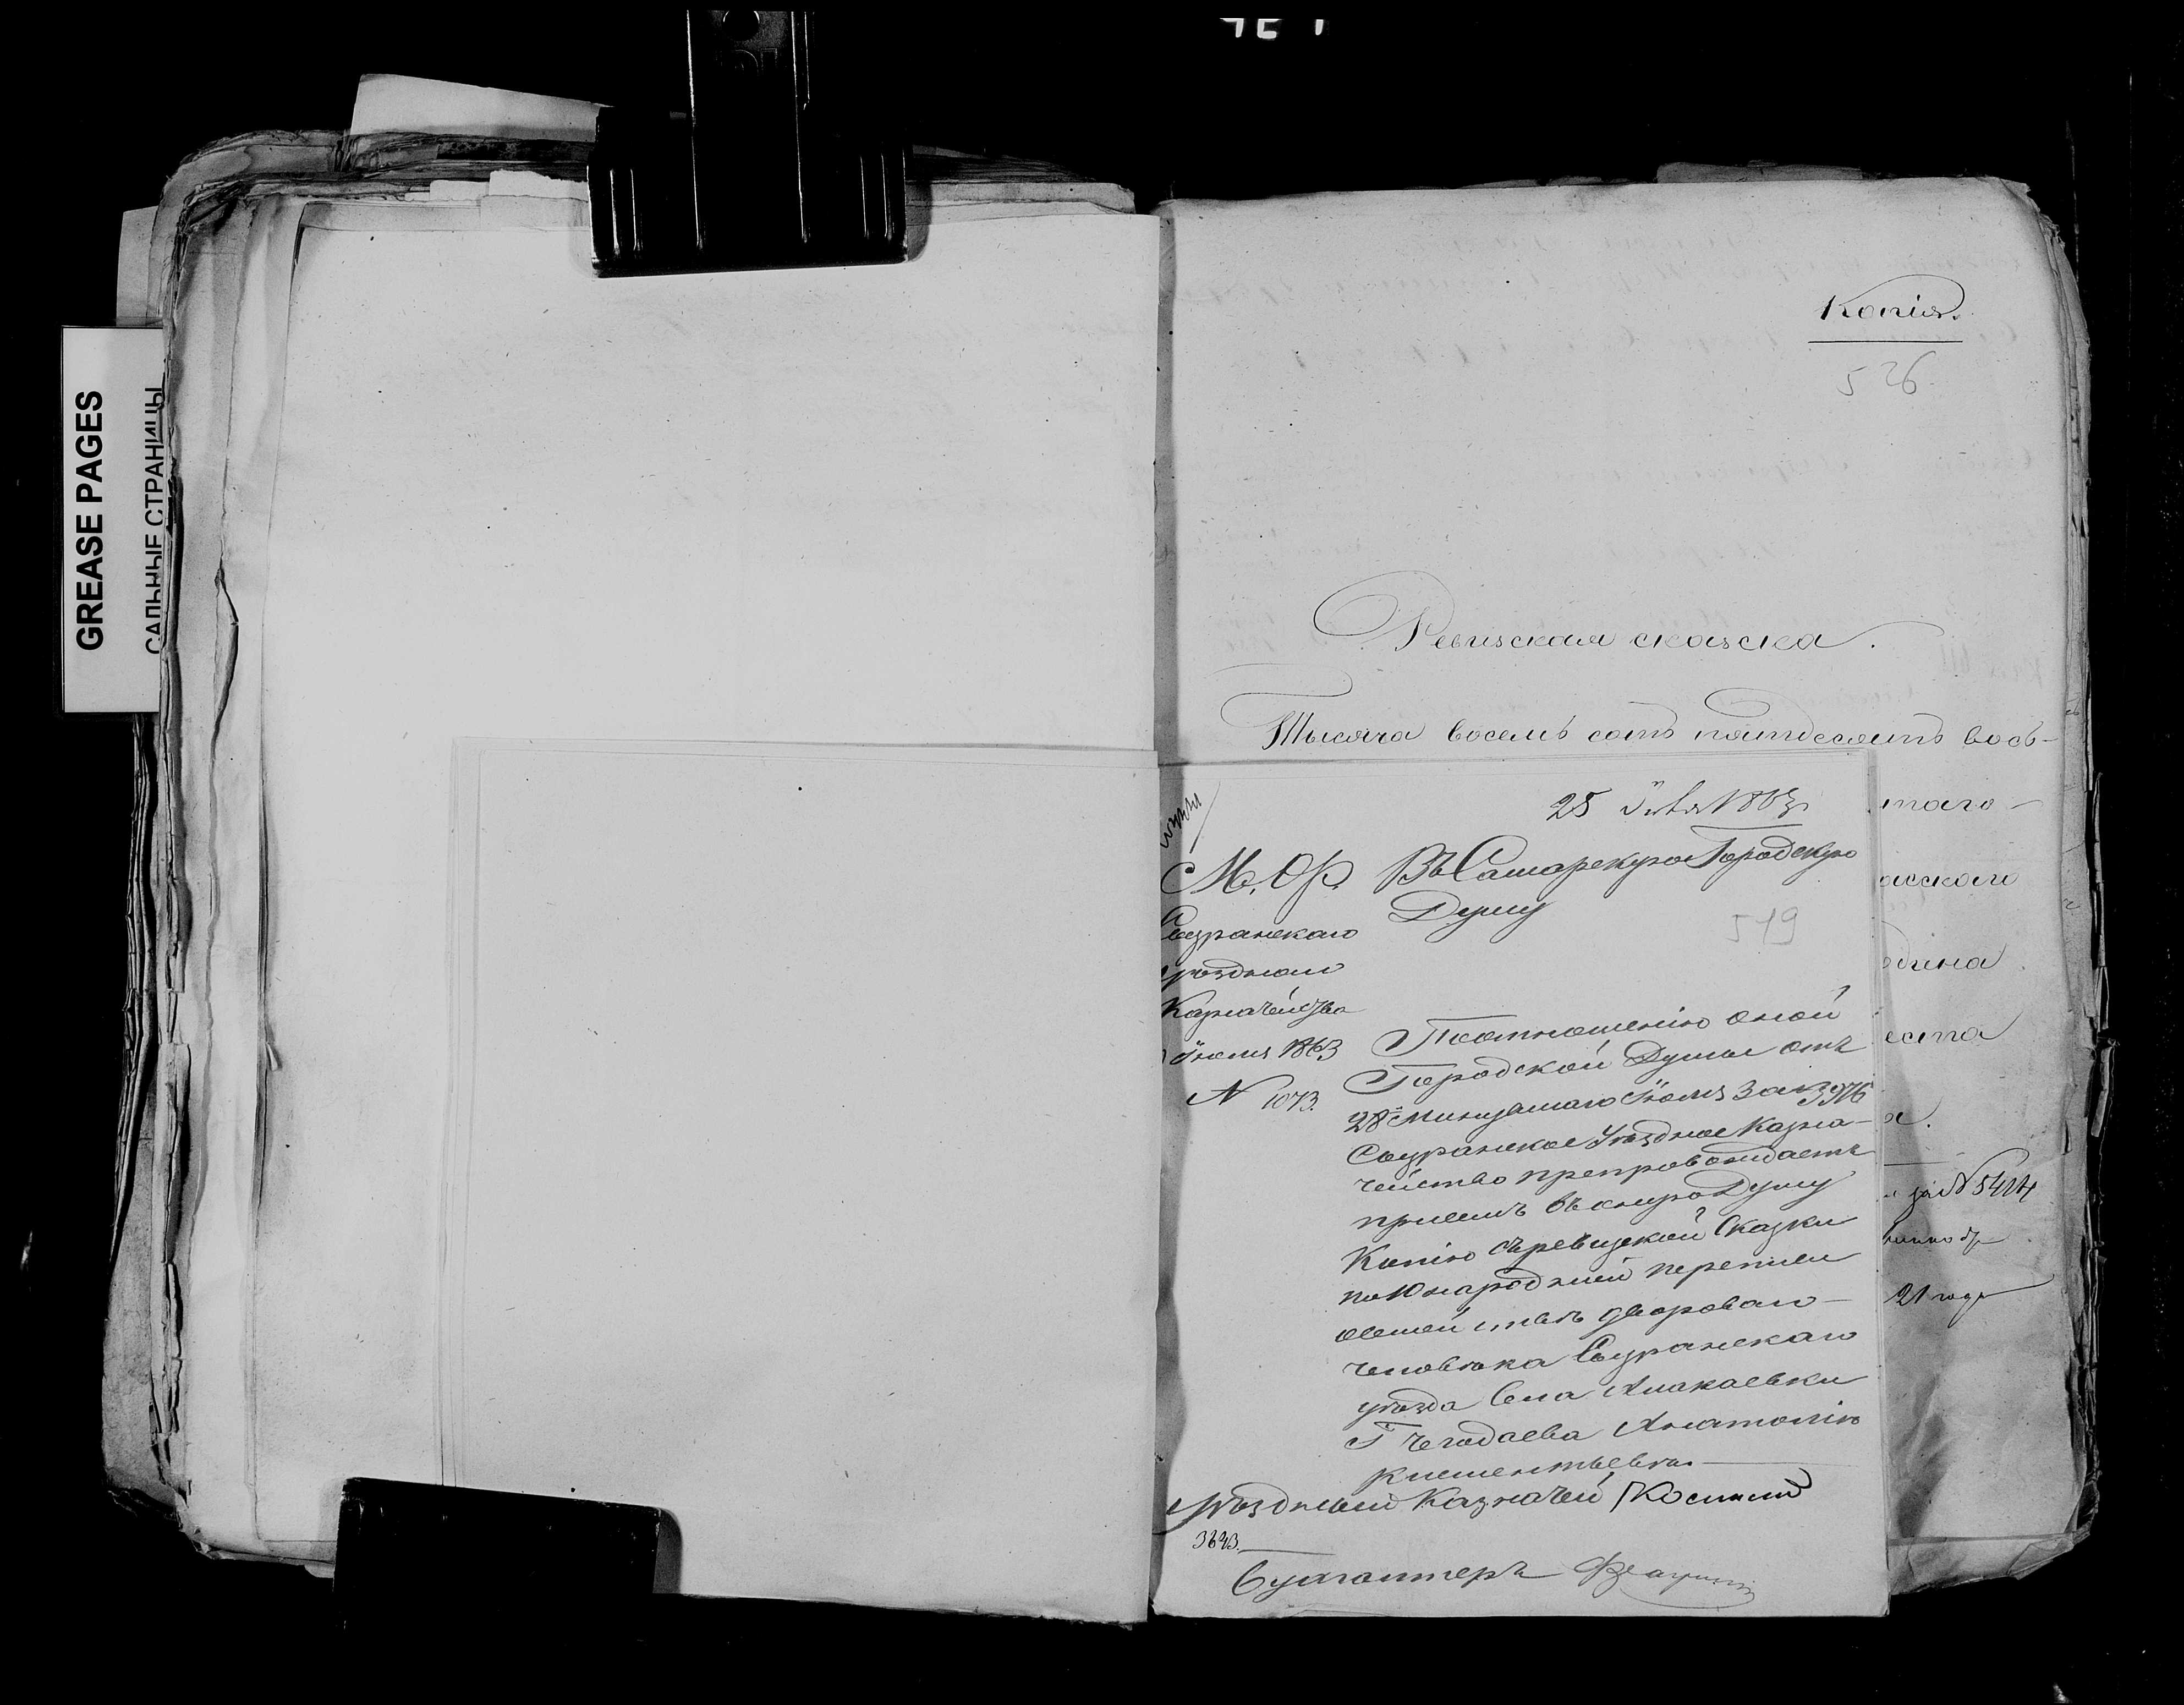 GREASE PAGES
САЛЬНЫЕ СТРАНИЦЫ
Копія.
526
Ревизская сказка.
Тысяча восемь сотъ пятдесятъ вось-
таго
асскаго
одина
еста
а.
за № 5414
21 года
25 Іюля 1863
М. Ф.
Сызранскаго
уѣзднаго
Казначейства
Іюля 1863
N 1073.
Въ Самарскую Городскую
Думу
519
По отношенію оной
Городской Думы отъ
28 минувшаго Іюня за № 3976
Сызранское Уѣздное Казна-
чейство препровождаетъ
присемъ въ оную Думу
Копію съ ревизской сказки
по 10 народной переписи
дворовом
человѣка Сызранскаго
уѣзда Села Амакаевки
Г Чегодаева Анатолію
Климентьева
Уѣздный Казначей
3643.
Бухгалтеръ